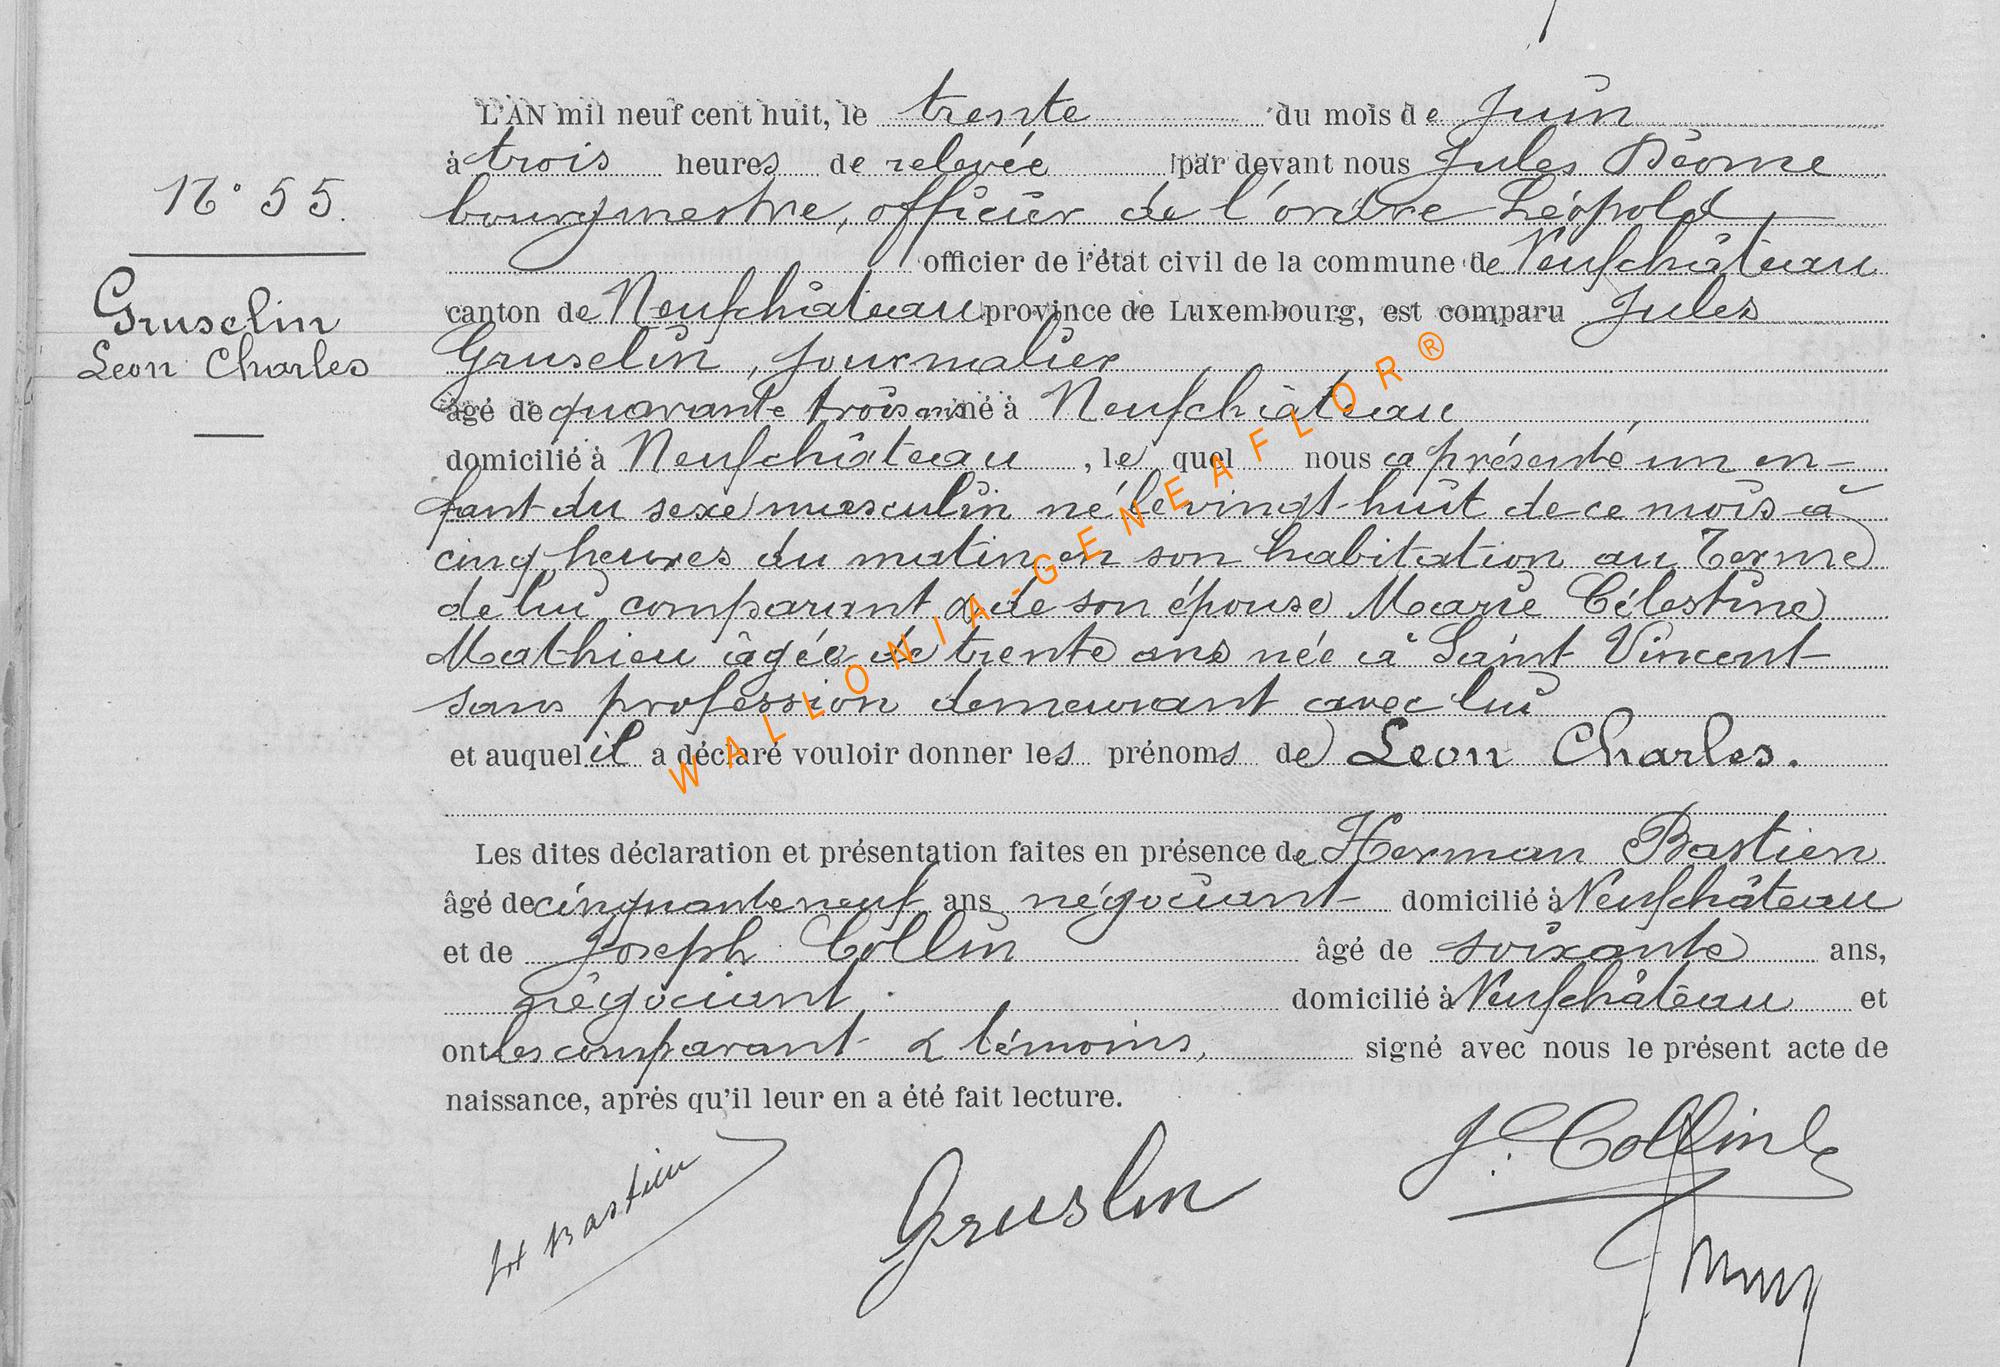 L'AN mil neuf cent huit, le trente du mois de Juin
à trois heures de relevée par devant nous Jules
N° 55.
bourgmestre, officier de l'ordre Léopold,
officier de l'état civil de la commune de Neufchâteau
Gruselin
Leon Charles
canton de Neufchâteau province de Luxembourg, est comparu Jules
Gruselin, journalier
âgé de quarante trois ans né à Neufchâteau
domicilié à Neufchâteau, le quel nous a présenté un en-
fant du sexe masculin né le vingt-huit de ce mois à
cinq heures du matin en son habitation au Terme
de lui comparant & de son épouse Marie Célestine
Mathieu âgée de trente ans née à Saint Vincent
sans profession demeurant avec lui
et auquel il a déclaré vouloir donner les prénoms de Leon Charles.
Les dites déclaration et présentation faites en présence de Herman Bastien
âgé de cinquante neuf ans négociant domicilié à Neufchâteau
et de Joseph Collin âgé de soixante ans,
négociant. domicilié à Neufchâteau et
ont les comparant & témoins, signé avec nous le présent acte de
naissance, après qu'il leur en a été fait lecture.
J. Collin
H Bastien
Gruslin
WALLONIA-GENEAFLOR®